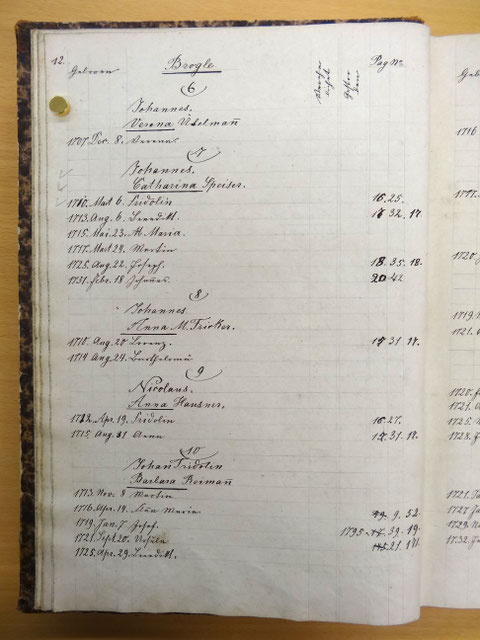 12.
Geboren Brogle Verehe licht Gestor ben Pag No.
6
Johannes.
Verena Üekelmañ
1707. Dec. 8. Verena
7
Johannes.
Catharina Speiser.
1710. Mart 6. Fridolin 16. 25.
1713. Aug. 6. Benedikt. 32. 17.
1715. Mai 23. A. Maria.
1717. Mart 29. Martin
1725. Aug. 22. Joseph. 18. 35. 18.
1731. Febr. 18 Johannes 20 42
8
Johannes
Anna M. Fricker.
1710. Aug. 20 Lorenz. 31 17.
1714 Aug. 24. Bartholomä
9
Nicolaus.
Anna Hausner.
1712. Apr. 19. Fridolin 16. 27.
1715. Aug. 31 Anna 31. 17.
10
Johan Fridolin
Barbara Bormañ
1713. Nov. 8 Martin
1716. Apr. 19. Maria 9. 52.
1719. Jan. 7 Josef. 1795. 39. 19.
1721. Sept. 20. Ursula 21. 171.
1725. Apr. 29. Benedikt.
1716
1720. J
1719.
1721. A
1720. F
1721. A
1725.
1728. F
1721. Ja
1727. J
1729. No
1732. J